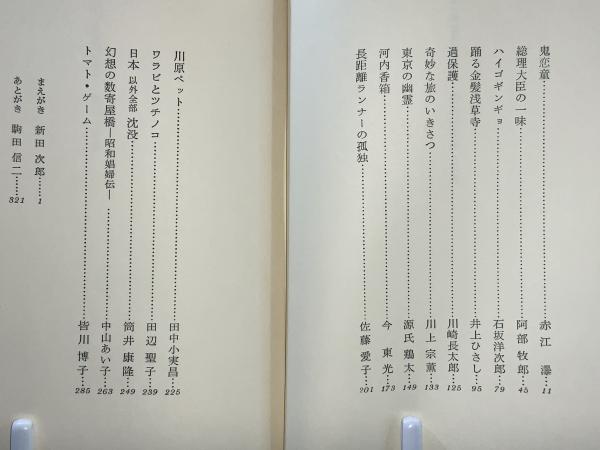 鬼恋童……赤江 瀑……11
総理大臣の一味……阿部牧郎……45
ハイゴギンギョ……石坂洋次郎……79
踊る金髪浅草寺……井上ひさし……95
過保護……川崎長太郎……125
奇妙な旅のいきさつ……川上宗薫……133
東京の幽霊……源氏鶏太……149
河内香箱……今 東光……173
長距離ランナーの孤独……佐藤愛子……201
川原ペット……田中小実昌……225
ワラビとツチノコ……田辺聖子……239
日本以外全部沈没……筒井康隆……249
幻想の数寄屋橋―昭和娼婦伝―……中山あい子……263
トマト・ゲーム……皆川博子……285
まえがき 新田次郎……1
あとがき 駒田信二……321